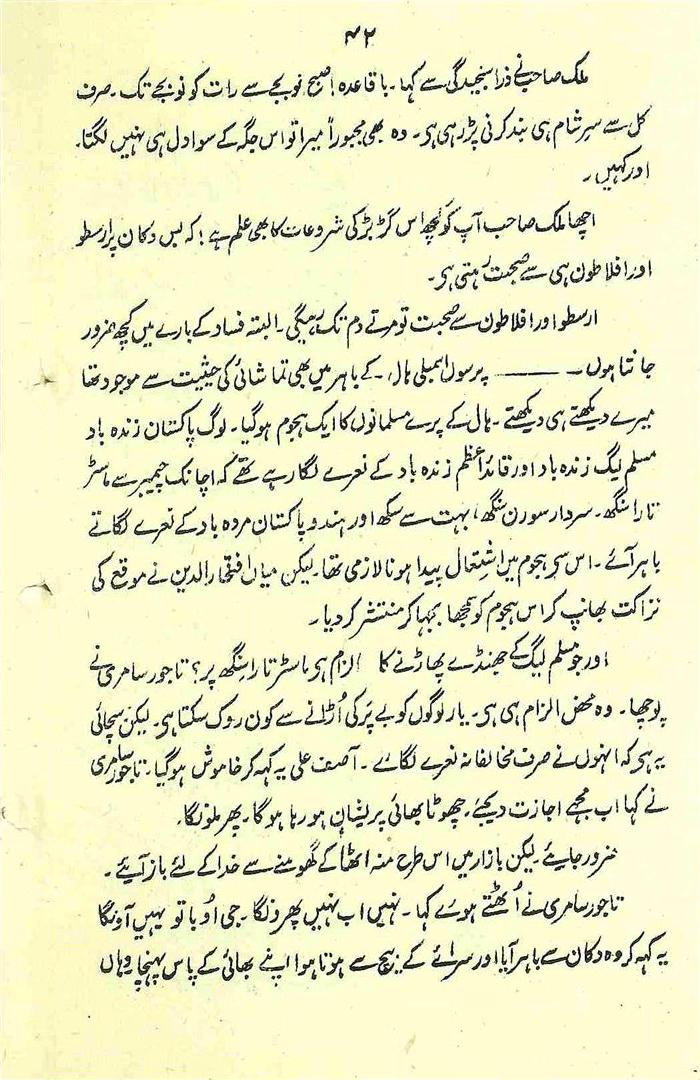 ۴۲
ملک صاحب نے ذرا سنجیدگی سے کہا۔ باقاعدہ! صبح نو بجے سے رات کو نو بجے تک۔ صرف
کل سے سرِ شام ہی بند کرنی پڑ رہی ہی۔ وہ بھی مجبوراً میرا تو اس جگہ کے سوا دل ہی نہیں لگتا۔
اور کہیں۔
اچھا ملک صاحب آپ کو کچھ اس گڑبڑ کی شروعات کا بھی علم ہے؛ کہ بس دکان پر ارسطو
اور افلاطون ہی سے صحبت رہتی ہی۔
ارسطو اور افلاطون سے صحبت تو مرتے دم تک رہیگی۔ البتہ فساد کے بارے میں کچھ ضرور
جانتا ہوں۔ ——— پرسوں اسمبلی ہال۔ کے باہر میں بھی تماشائی کی حیثیت سے موجود تھا
میرے دیکھتے ہی دیکھتے۔ ہال کے پرے مسلمانوں کا ایک ہجوم ہوگیا۔ لوگ پاکستان زندہ باد
مسلم لیگ زندہ باد اور قائد اعظم زندہ باد کے نعرے لگا رہے تھے کہ اچانک چیمبر سے ماسٹر
تارا سنگھ۔ سردار سورن سنگھ، بہت سے سکھ اور ہندو پاکستان مردہ باد کے نعرے لگاتے
باہر آئے۔ اس سی ہجوم میں اشتعال پیدا ہونا لازمی تھا۔ لیکن میاں افتخار الدین نے موقع کی
نزاکت بھانپ کر اس ہجوم کو سمجھا بجھا کر منتشر کر دیا۔
اور جو مسلم لیگ کے جھنڈے پھاڑنے کا الزام ہی ماسٹر تارا سنگھ پر؟ تاجور سامری نے
پوچھا۔ وہ محض الزام ہی ہی۔ یار لوگوں کو بے پَر کی اُڑانے سے کون روک سکتا ہی۔ لیکن سچائی
یہ ہی کہ انہوں نے صرف مخالفانہ نعرے لگائے۔ آصف علی یہ کہہ کر خاموش ہوگیا۔ تاجور سامری
نے کہا اب مجھے اجازت دیجئے۔ چھوٹا بھائی پریشان ہو رہا ہوگا۔ پھر ملونگا۔
ضرور جایئے۔ لیکن بازار میں اس طرح منہ اٹھا کے گھومنے سے خدا کے لئے باز آیئے۔
تاجور سامری نے اُٹھتے ہوئے کہا۔ نہیں اب نہیں پھرونگا۔ جی اُوبا تو یہیں آونگا
یہ کہہ کر وہ دکان سے باہر آیا اور سرائے کے بیچ سے ہوتا ہوا اپنے بھائی کے پاس پہنچا وہاں